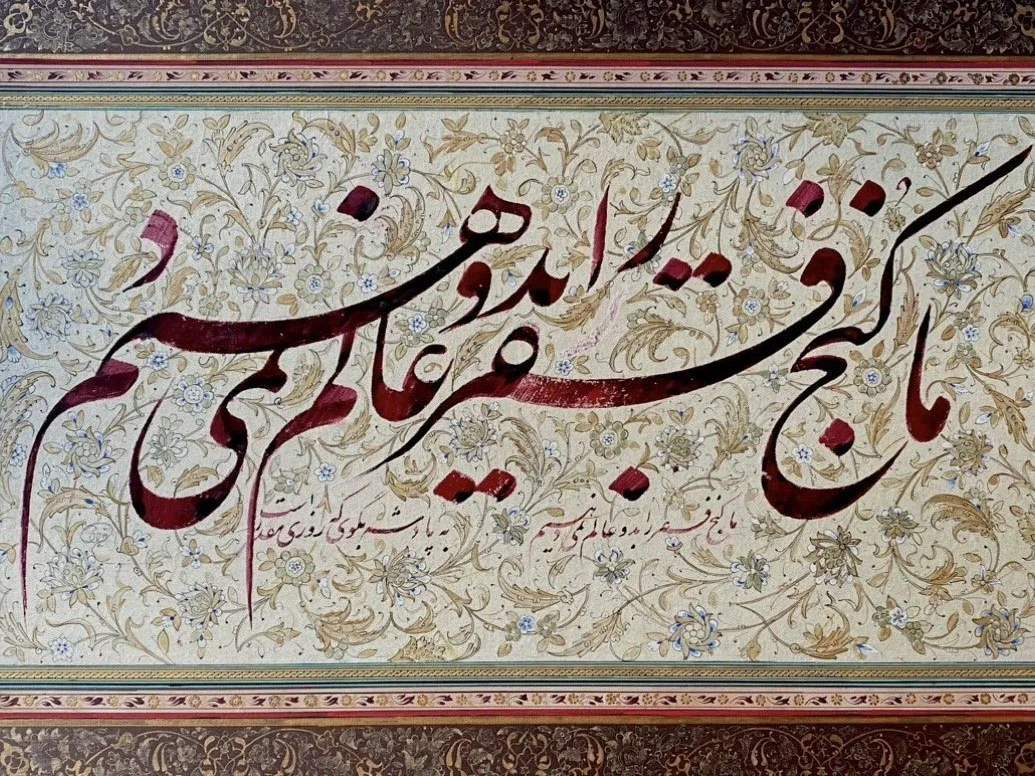 ما کنج فقر را بدو عالم نمی دهیم
ما کنج فقر را بدو عالم نمی دهیم
به پادشه بگوی که روزی مقدر است